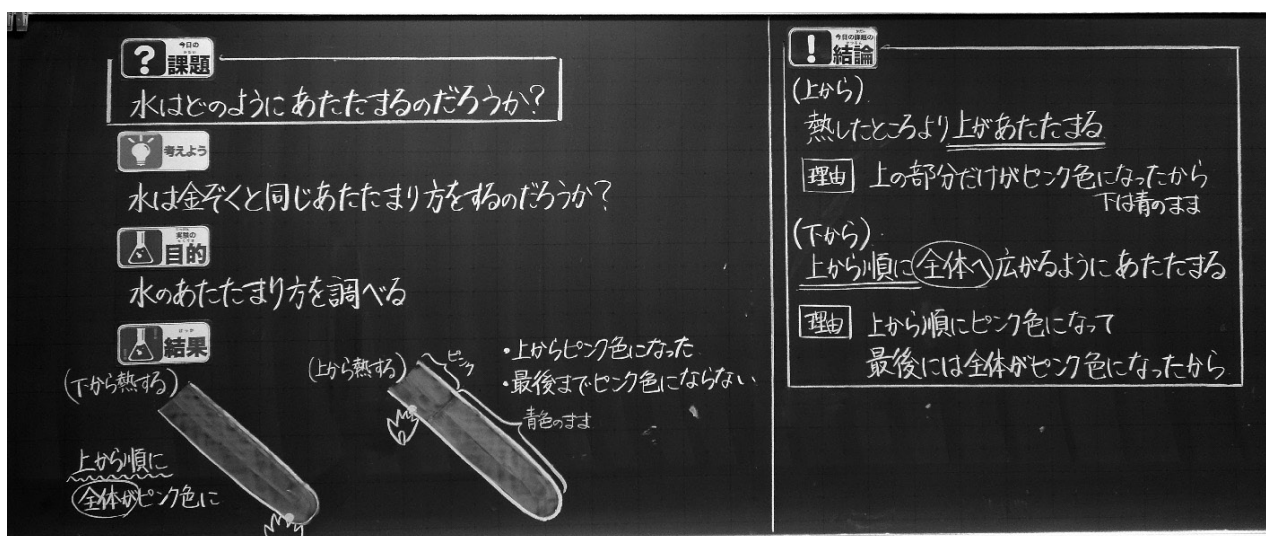 今日の
課題
水はどのようにあたたまるのだろうか?
考えよう
水は金ぞくと同じあたたまり方をするのだろうか?
実験の
目的
水のあたたまり方を調べる
結果
(下から熱する)
上から順に
全体がピンク色に
(上から熱する)
ピンク
・上からピンク色になった
・最後までピンク色にならない
青色のまま
今日の課題の
結論
(上から)
熱したところより上があたたまる
理由 上の部分だけがピンク色になったから
下は青のまま
(下から)
上から順に全体へ広がるようにあたたまる
理由 上から順にピンク色になって
最後には全体がピンク色になったから